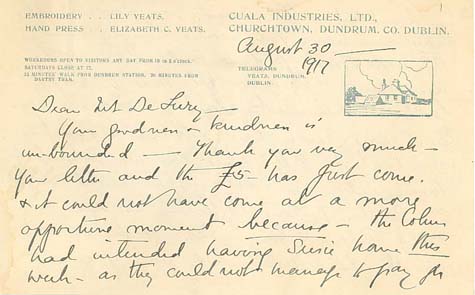 EMBROIDERY . . LILY YEATS.
HAND PRESS . . ELIZABETH C. YEATS.
CUALA INDUSTRIES, LTD.,
CHURCHTOWN, DUNDRUM, CO. DUBLIN.
WORKROOMS OPEN TO VISITORS ANY DAY FROM 10 to 5 o'clock.
SATURDAYS CLOSE AT
MINUTES' WALK FROM DUNDRUM STATION. 20 MINUTES FROM
TRAM.
TELEGRAMS
YEATS, DUNDRUM,
DUBLIN.
August 30 —
1917
Dear
Your goodness & kindness is
unbounded — Thank you very much —
Your letter and the £5 has just come.
& it could not have come at a more
opportune moment because — the
had intended having Susie home this
week — as they could not manage to pay